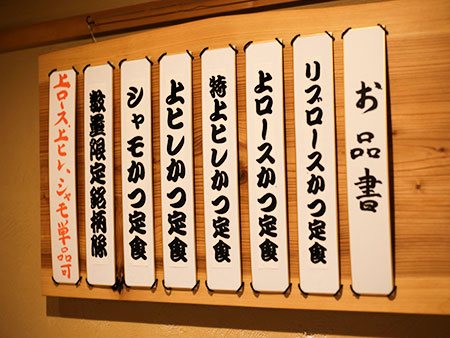 お品書
リブロースかつ定食
上ロースかつ定食
特上ヒレかつ定食
上ヒレかつ定食
シャモかつ定食
数量限定銘柄豚
上ロース、上ヒレ、シャモ単品可